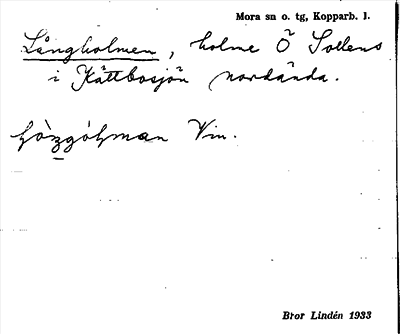 Mora sn o. tg, Kopparb. l.
Långholmen, holme Ö Sollens
i Kättbosjön nordända.
Vin.
Bror Lindén 1933